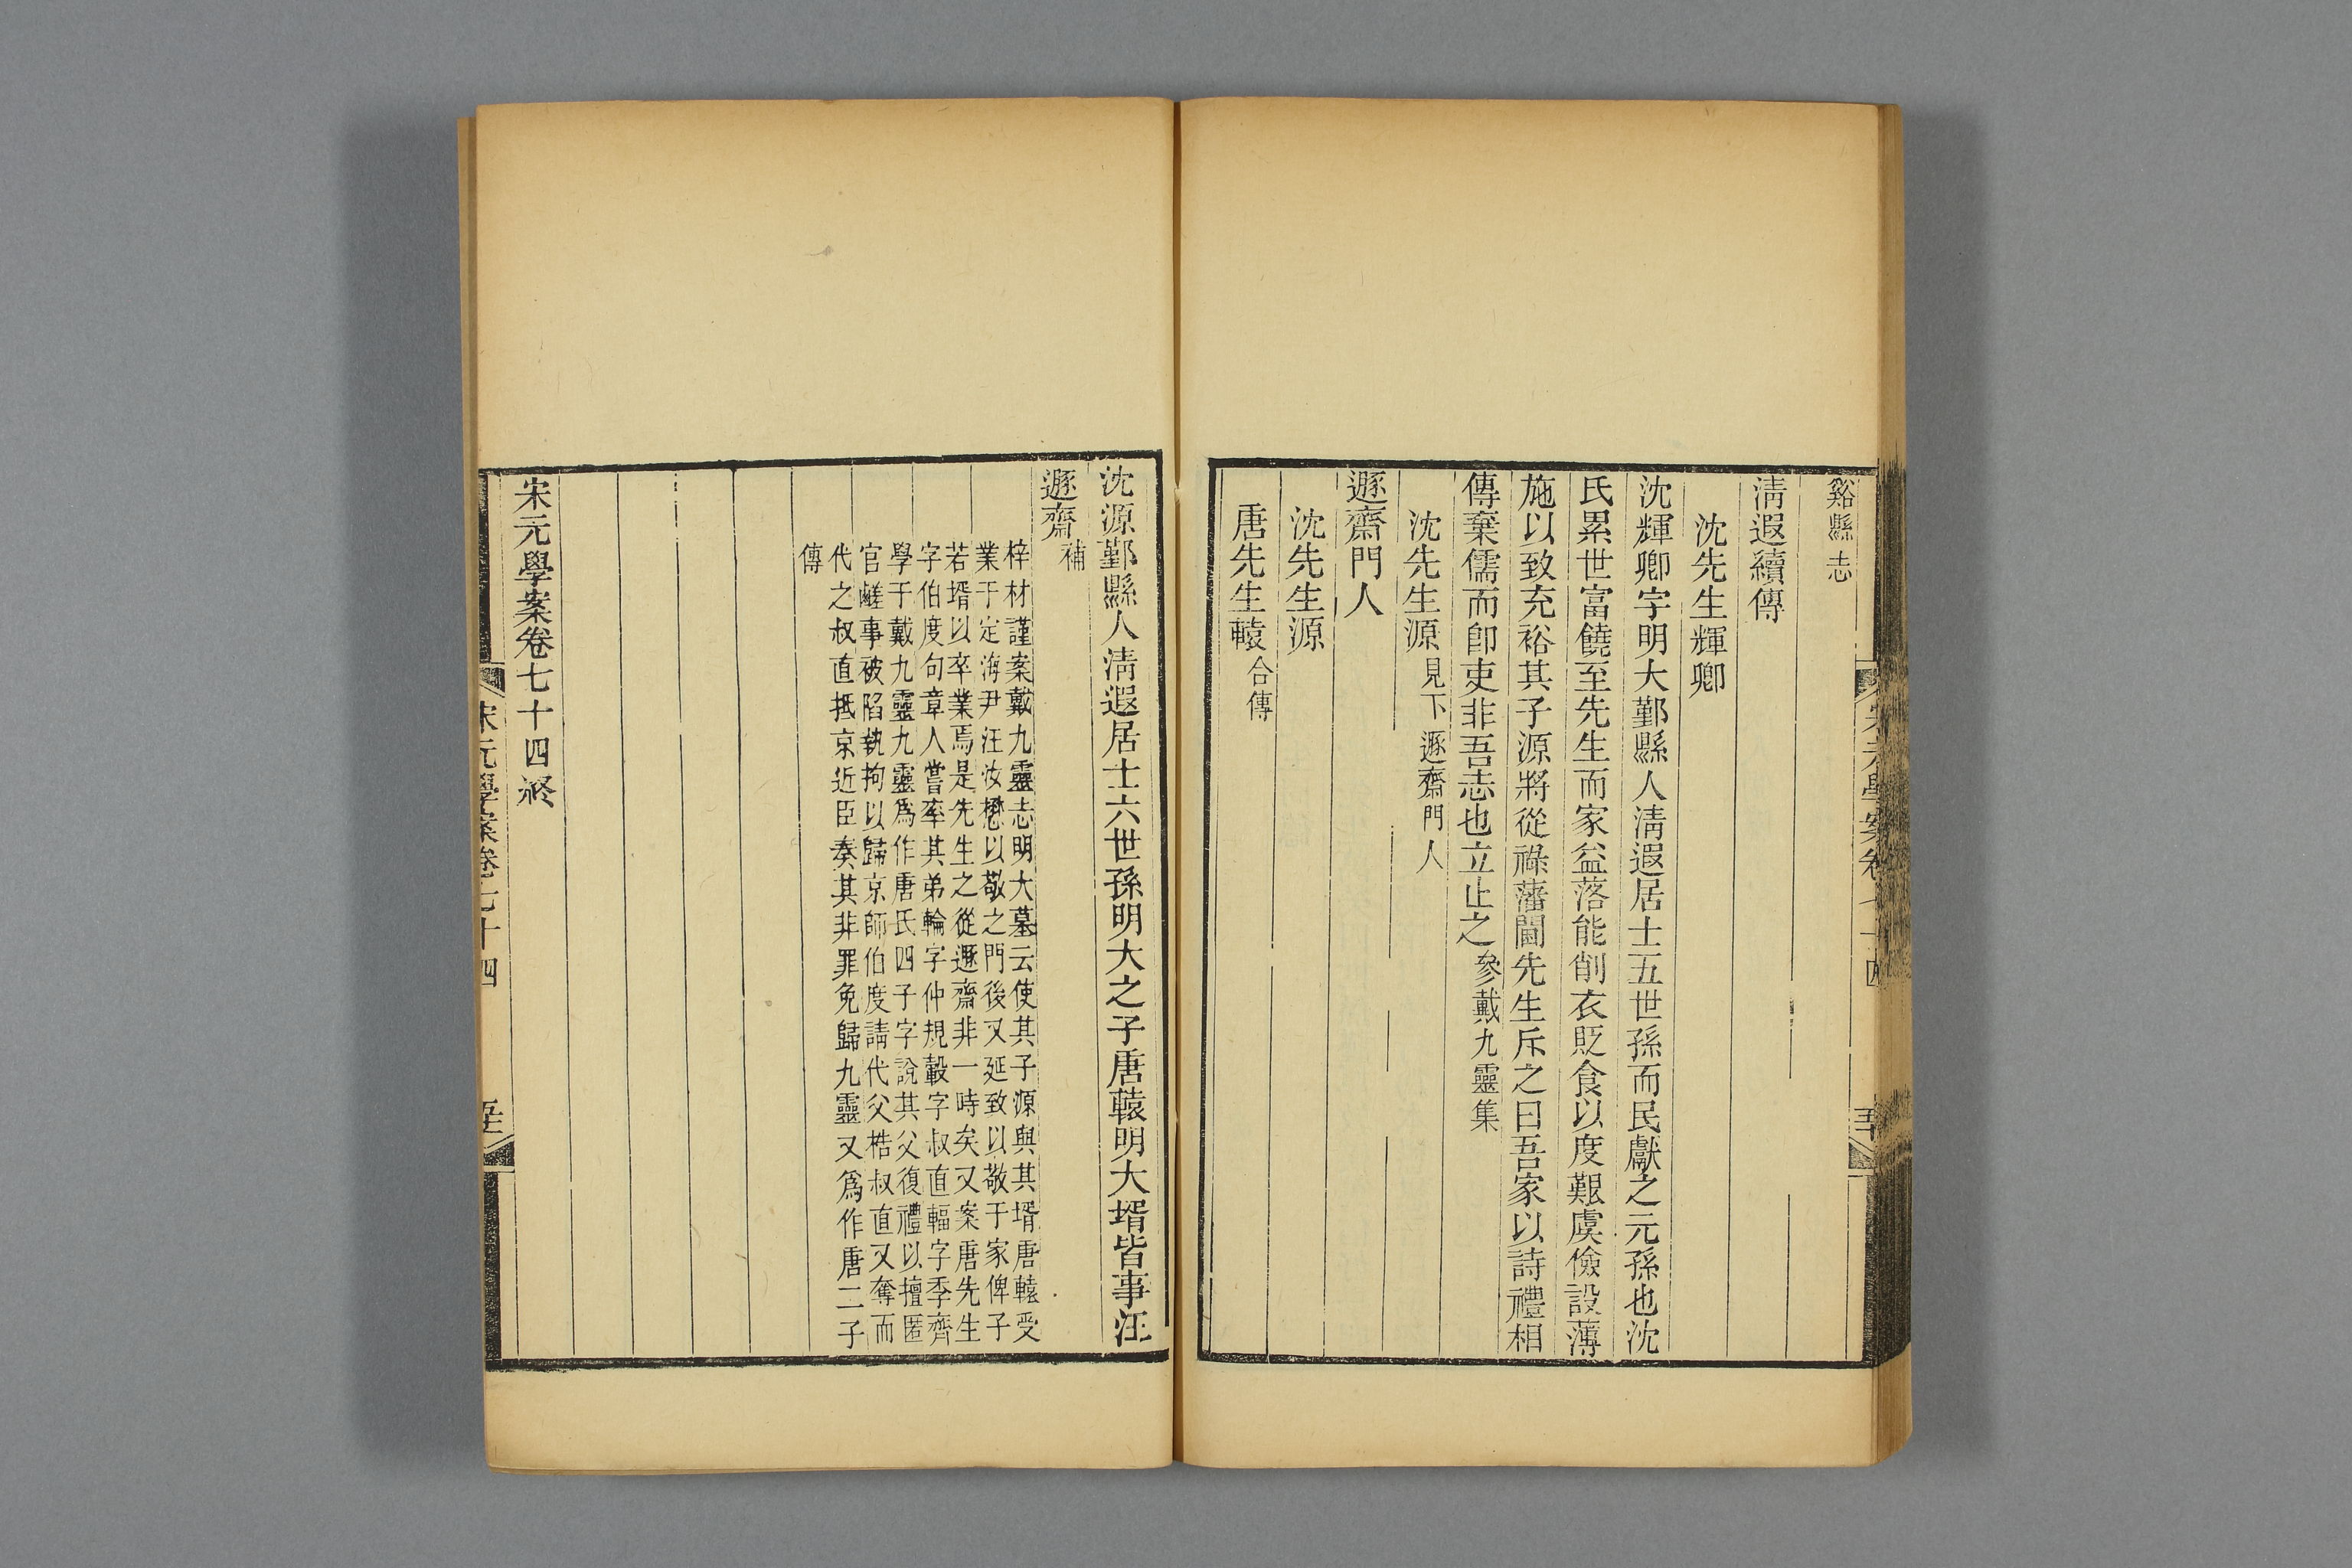 谿縣志
淸遐續傳
沈先生輝卿
沈輝卿字明大鄞縣人淸遐居士五世孫而民獻之元孫也沈
氏累世富饒至先生而家益落能削衣貶食以度艱虞儉設薄
施以致充裕其子源將從祿藩閫先生斥之曰吾家以詩禮相
傳棄儒而卽吏非吾志也立止之參戴九靈集
沈先生源見下遯齋門人
遯齋門人
沈先生源
唐先生轅合傳
沈源鄞縣人淸遐居士六世孫明大之子唐轅明大壻皆事汪
遯齋補
梓材謹案戴九靈志明大墓云使其子源與其壻唐轅受
業于定海尹汪汝懋以敬之門後又延致以敬于家俾子
若壻以卒業焉是先生之從遯齋非一時矣又案唐先生
字伯度句章人嘗率其弟輪字仲規轂字叔直輻字季齊
學于戴九靈九靈爲作唐氏四子字說其父復禮以擅匿
官艖事被陷執拘以歸京師伯度請代父梏叔直又奪而
代之叔直抵京近臣奏其非罪免歸九靈又爲作唐二子
傳
宋元學案卷七十四終
宋元學案卷七十四